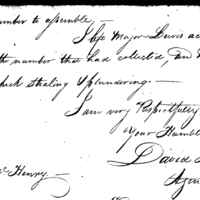 number to assemble. —
I left Major Lewis ac
the number that had collected and
check stealing & plundering: —
I am very Respectfully
Your Humble
David
Agen
Mc Henry. —